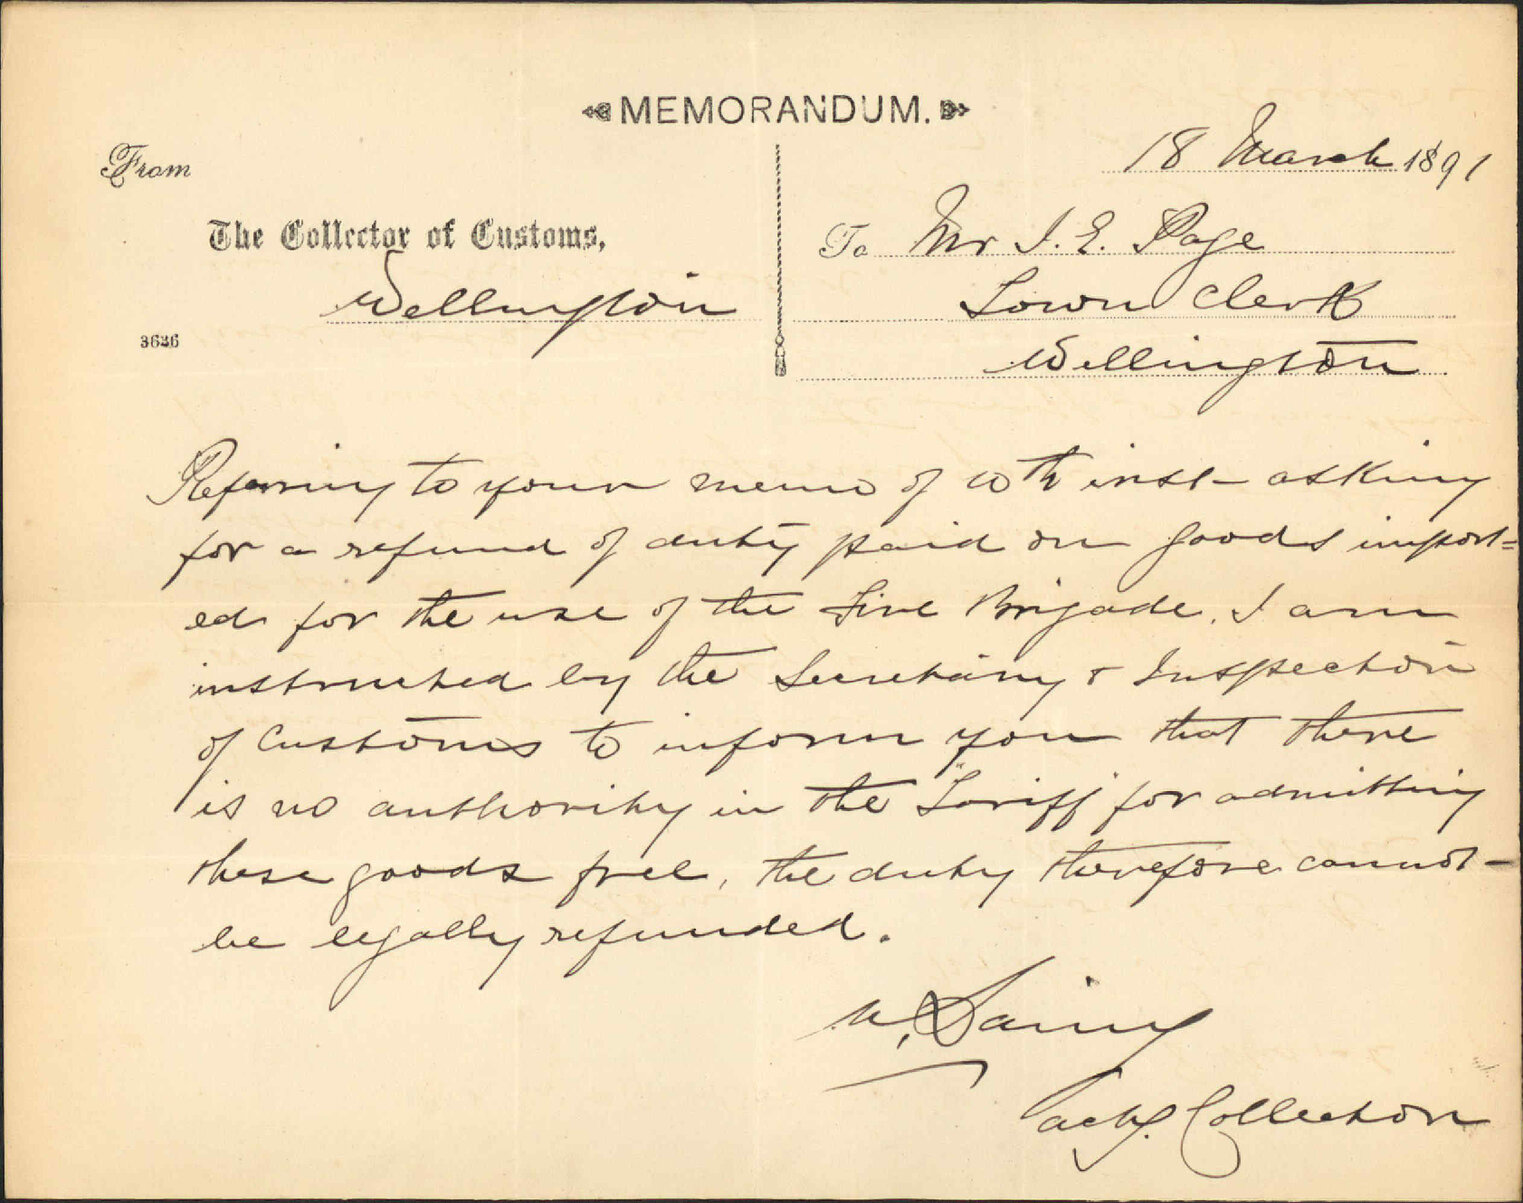 MEMORANDUM.
18 March 1891
From
The Collector of Customs,
Wellington
3636
To Mr J. E. Page
Town Clerk
Wellington
Referring to your memo of 10th inst asking
for a refund of duty paid on goods import=
ed for the use of the Fire Brigade. I am
instructed by the Secretary & Inspector
of Customs to inform you that there
is no authority in the "Tariff" for admitting
these goods free, the duty therefore cannot
be legally refunded.
actg. Collector